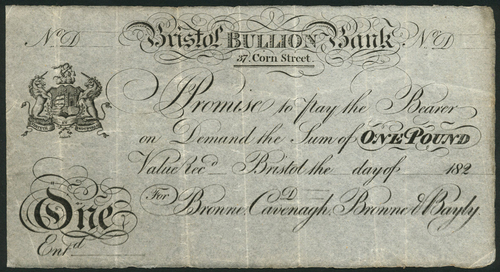 No D Bristol BULLION Bank No D
37, Corn Street.
I Promise to pay the Bearer
on Demand the Sum of ONE POUND
Value Recd. Bristol the day of 182
For D
Browne, Cavenagh, Browne & Bayly
One
Entd.